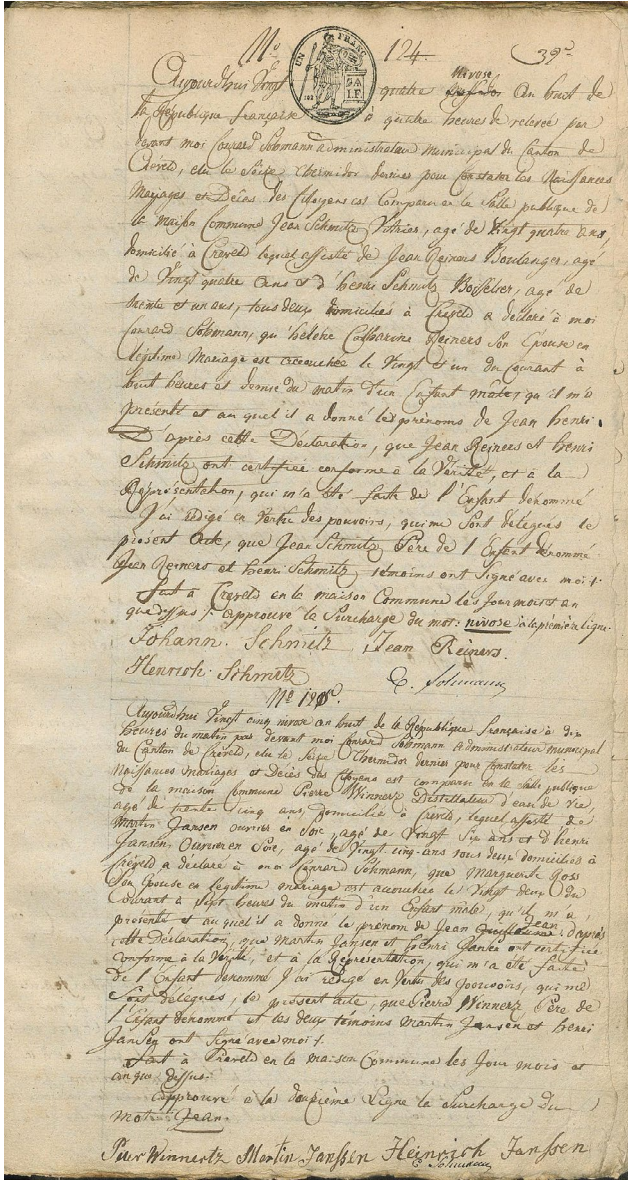 N.º 124. 39.e
UN FRANC
Aujourd'hui Vingt quatre nivose an huit de
la République française à quatre heures de relevée par
devant moi Conrard Sohmann administrateur municipal du Canton de
Creveld, elu le Seize thermidor dernier pour constater les Naissances
Mariages et Décès des Citoyens est Comparu en la Salle publique de
la maison Commune Jean Schmitz Vitrier, agé de Vingt quatre ans,
domicilié à Creveld lequel assisté de Jean Reiners Boulanger, agé
de Vingt quatre ans et d'henri Schmitz Boisselier, agé de
trente et un ans, tous deux domiciliés à Creveld a déclaré à moi
Conrard Sohmann, qu'hélène Catharine Reiners Son Epouse en
légitime Mariage est accouchée le Vingt et un du Courant à
huit heures et demie du matin d'un Enfant mâle, qu'il m'a
présenté et au quel il a donné les prénoms de Jean henri.
D'après cette Déclaration, que Jean Reiners et henri
Schmitz ont certifiée conforme à la Vérité, et à la
Représentation, qui m'a été faite de l'Enfant dénommé
J'ai rédigé en Vertu des pouvoirs, qui me Sont délégués le
present Acte, que Jean Schmitz Père de l'Enfant dénommé
Jean Reiners et henri Schmitz témoins ont Signé avec moi.
Fait à Creveld en la maison Commune les Jour mois et an
que dessus. approuvé la Surcharge du mot: nivose à la première ligne.
Johann Schmitz Jean Reiners.
Henrich Schmitz C. Sohmann
N.º 125.
Aujourd'hui Vingt cinq nivose an huit de la République française à dix
heures du matin par devant moi Conrard Sohmann Administrateur municipal
du Canton de Creveld, elu le Seize Thermidor dernier pour constater les
Naissances mariages et Décès des Citoyens est comparu en la Salle publique
de la maison Commune Pierre Winnertz Distillateur d'eau de vie,
agé de trente cinq ans, domicilié à Creveld, lequel assisté de
Martin Jansen ouvrier en Soie, agé de Vingt Six ans et d'henri
Jansen Ouvrier en Soie, agé de Vingt-cinq-ans tous deux domiciliés à
Creveld a déclaré à moi Conrard Sohmann, que Marguerite Goss
Son Epouse en légitime mariage est accouchée le Vingt deux du
Courant à Sept heures du matin d'un Enfant mâle, qu'il m'a
présenté et au quel il a donné le prénom de Jean Jean. D'après
cette Déclaration, que Martin Jansen et henri Jansen ont certifiée
Conforme à la Vérité, et à la Représentation, qui m'a été faite
de l'Enfant dénommé J'ai rédigé en Vertu des pouvoirs, qui me
Sont délégués, le présent acte, que Pierre Winnertz Père de
l'Enfant dénommé et les deux témoins Martin Jansen et henri
Jansen ont Signé avec moi.
Fait à Creveld en la maison Commune les Jour mois et
an que dessus.
approuvé à la douzième Ligne la Surcharge du
mot: Jean.
Piter Winnertz Martin Janssen Heinrich Janssen
C. Sohmann